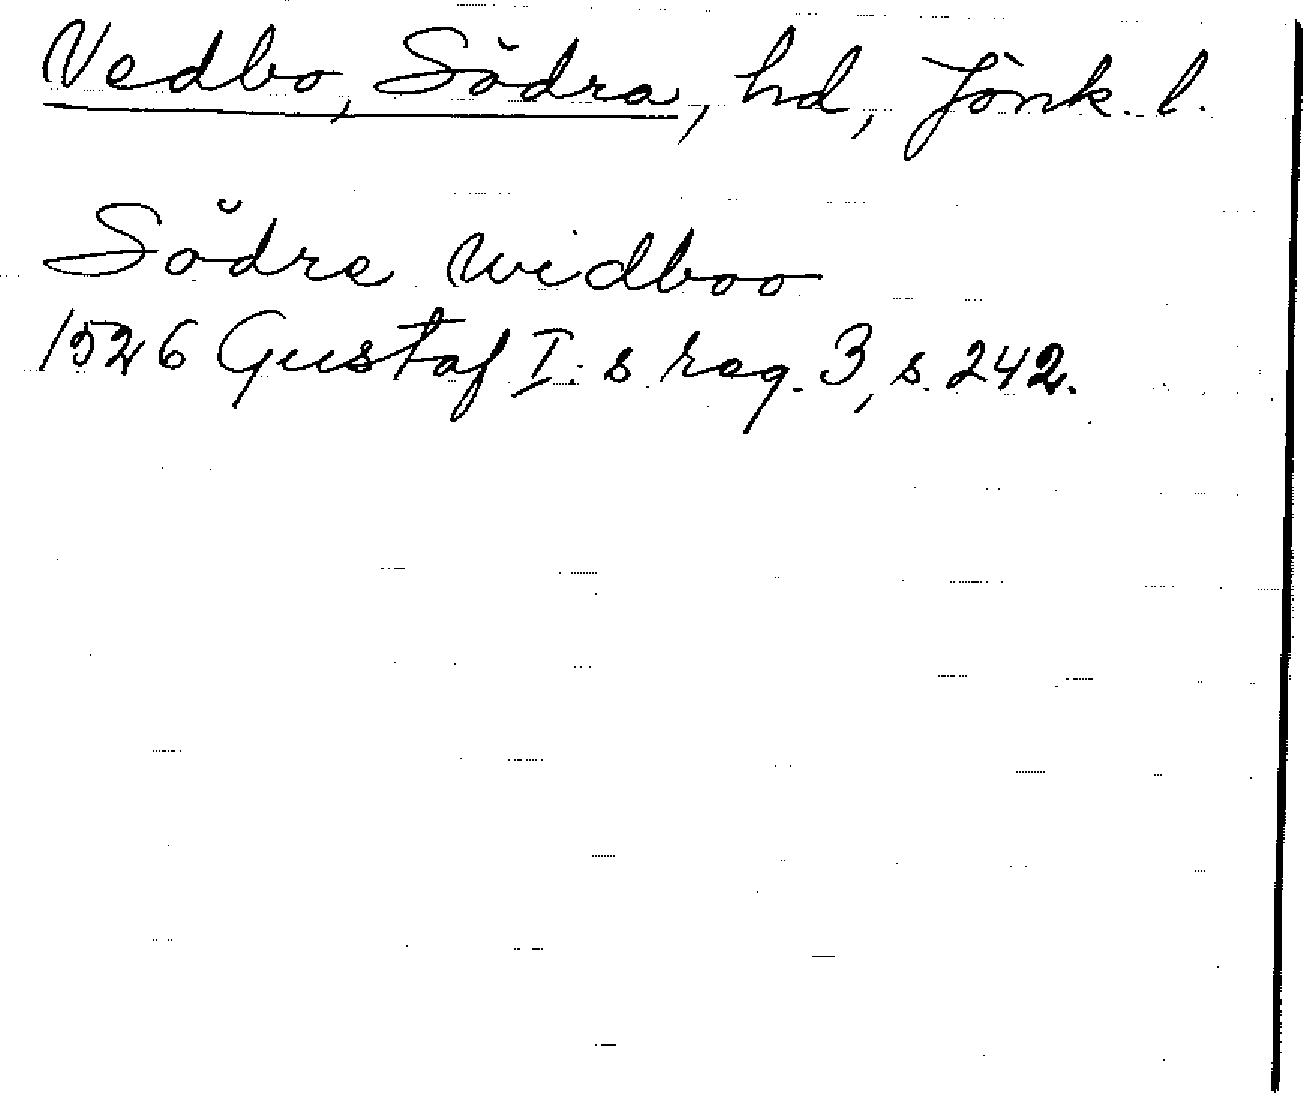 Vedbo, Södra, hd, Jönk. l.
Södre Widboo
1526 Gustaf I:s reg. 3, s. 242.